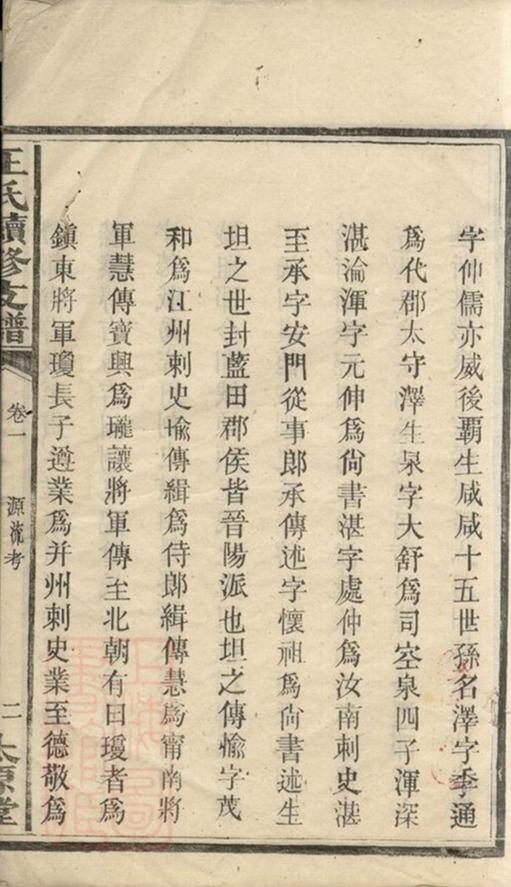 字仲儒亦威後霸生咸咸十五世孫名澤字季通
為代郡太守澤生泉字大舒為司空泉四子渾深
湛淪渾字元仲為尚書湛字處仲為汝南刺史湛
至承字安門從事郎承傳述字懷祖為尚書述生
坦之世封藍田郡侯皆晉陽派也坦之傳愉字茂
和為江州刺史愉傳緝為侍郎緝傳慧為甯南將
軍慧傳寶興為瓏讓將軍傳至北朝有曰瓊者為
鎮東將軍瓊長子遵業為并州刺史業至德敬為
王氏續修支譜
卷一
源流考
二
太原堂